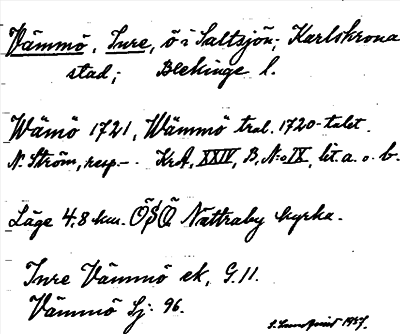 Vämmö, Inre, ö i Saltsjön; Karlskrona
stad; Blekinge l.
Wämö 1721, Wämmö tral. 1720-talet.
N. Ström, resp. -. KrA, XXIV, B, N:o IX, lit. a. o. b.
Läge 4,8 km. ÖSÖ Nättraby kyrka.
Inre Vämmö ek, G. 11.
Vämmö Lj: 96.
1957.